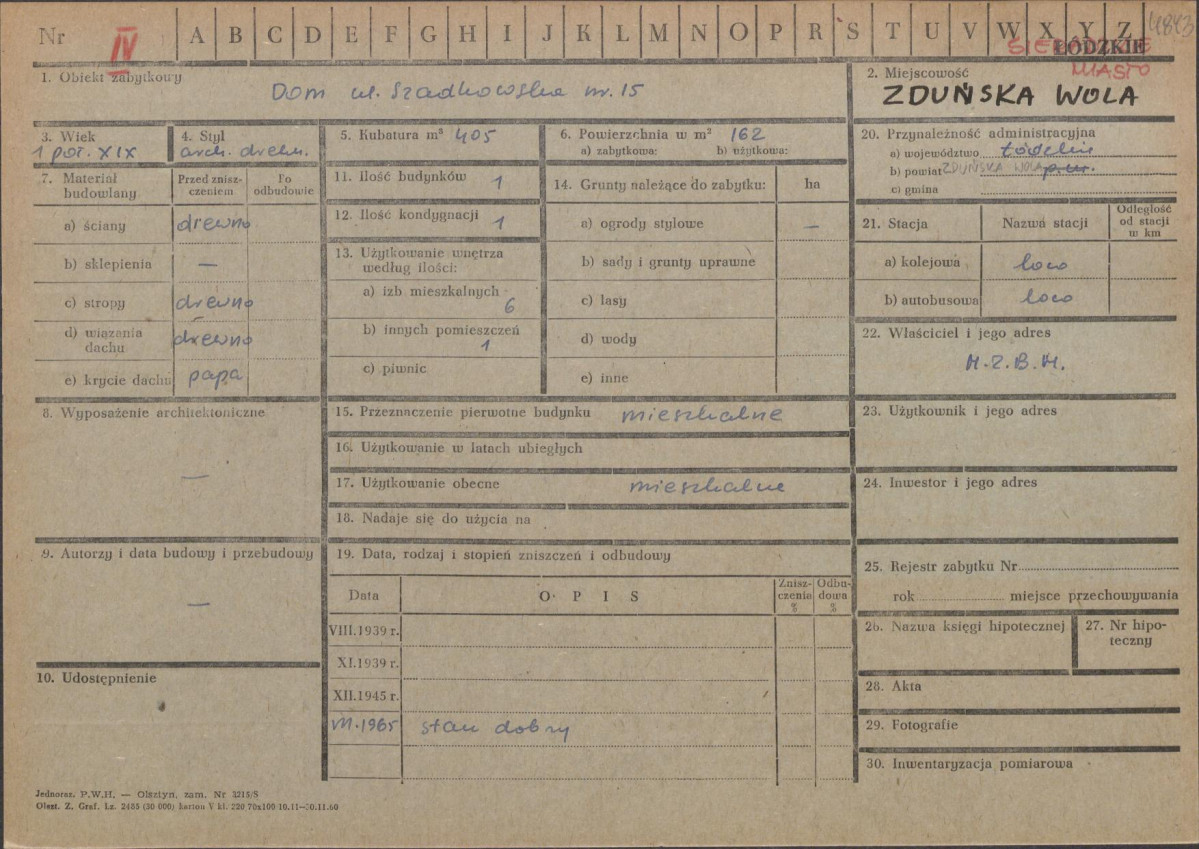 Nr IV A B C D E F G H I J K L M N O P R S T U V W X Y Z 4843
SIERADZKIE
ŁÓDZKIE
MIASTO
1. Obiekt zabytkowy
Dom ul. Szadkowska nr. 15
2. Miejscowość
ZDUŃSKA WOLA
3. Wiek
1 poł. XIX
4. Styl
arch. drewn.
5. Kubatura m³ 405
6. Powierzchnia w m² 162
a) zabytkowa: b) użytkowa:
20. Przynależność administracyjna
a) województwo Łódzkie
b) powiat ZDUŃSKA WOLA
c) gmina
7. Materiał budowlany
Przed zniszczeniem
Po odbudowie
a) ściany drewno
b) sklepienia —
c) stropy drewno
d) wiązania dachu drewno
e) krycie dachu papa
11. Ilość budynków 1
12. Ilość kondygnacji 1
13. Użytkowanie wnętrza
według ilości:
a) izb mieszkalnych 6
b) innych pomieszczeń 1
c) piwnic
14. Grunty należące do zabytku: ha
a) ogrody stylowe —
b) sady i grunty uprawne
c) lasy
d) wody
e) inne
21. Stacja
Nazwa stacji
Odległość
od stacji
w km
a) kolejowa loco
b) autobusowa loco
22. Właściciel i jego adres
M.Z.B.M.
8. Wyposażenie architektoniczne
—
15. Przeznaczenie pierwotne budynku mieszkalne
16. Użytkowanie w latach ubiegłych
17. Użytkowanie obecne mieszkalne
18. Nadaje się do użycia na
23. Użytkownik i jego adres
24. Inwestor i jego adres
9. Autorzy i data budowy i przebudowy
—
10. Udostępnienie
19. Data, rodzaj i stopień zniszczeń i odbudowy
Data
O P I S
Zniszczenia
%
Odbudowa
%
VIII.1939 r.
XI.1939 r.
XII.1945 r.
VII.1965 stan dobry
25. Rejestr zabytku Nr
rok miejsce przechowywania
26. Nazwa księgi hipotecznej
27. Nr hipoteczny
28. Akta
29. Fotografie
30. Inwentaryzacja pomiarowa
Jednoraz. P.W.H. — Olsztyn, zam. Nr 3215/S
Olszt. Z. Graf. Lz. 2455 (30 000) karton V kl. 220 70x100 10.11—30.11.60